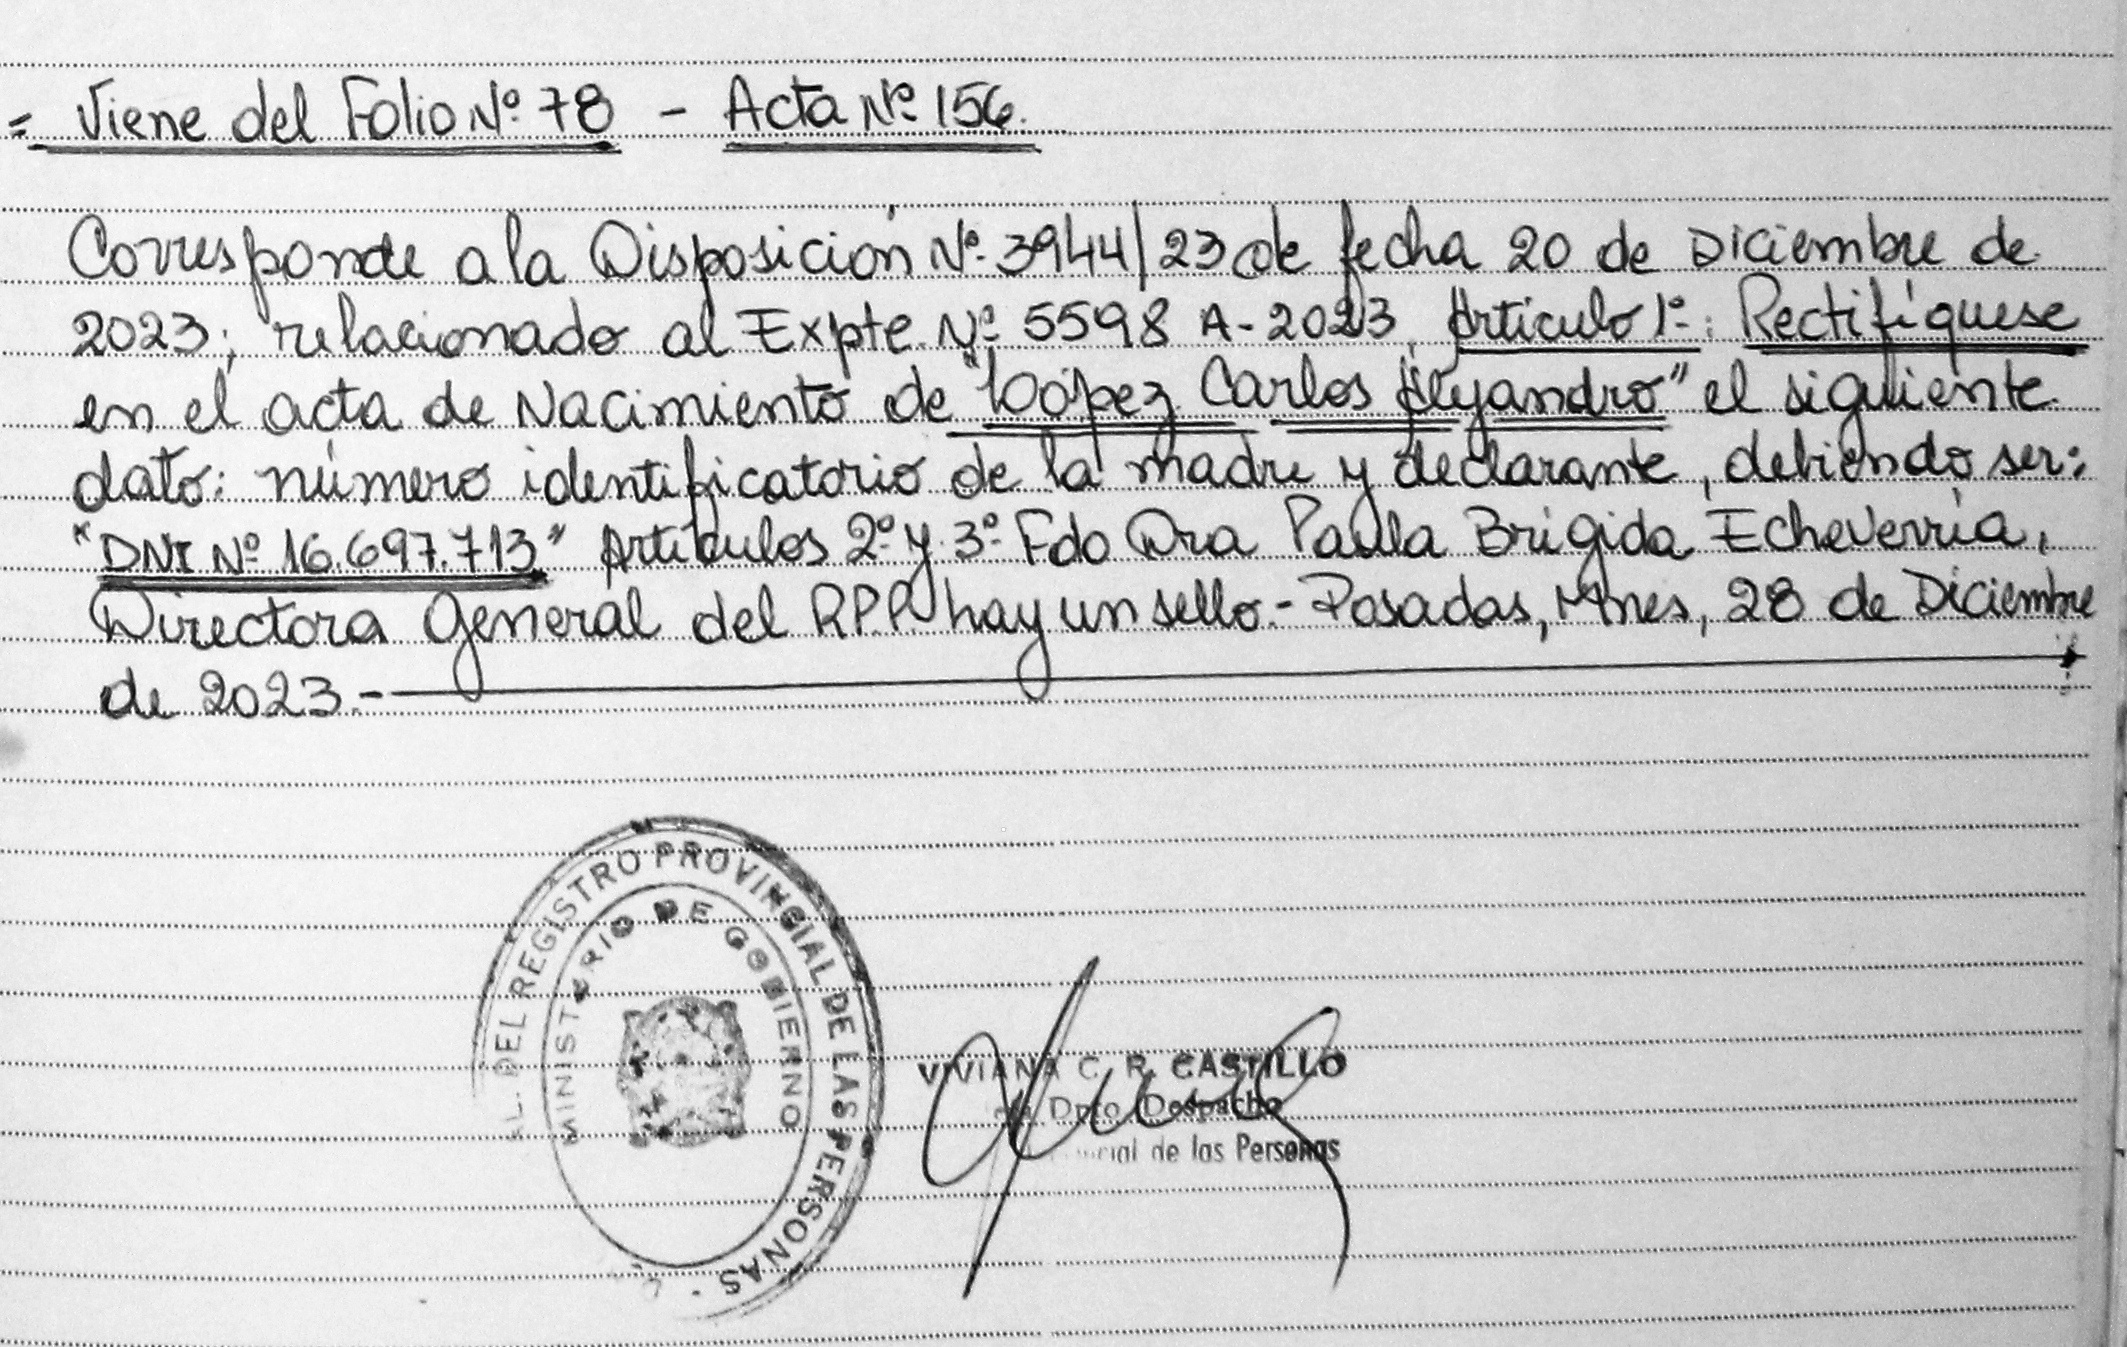 = Viene del Folio Nº 78 - Acta Nº 156.
Corresponde a la Disposición Nº 3944/23 de fecha 20 de Diciembre de
2023; relacionado al Expte. Nº 5598 A-2023. Artículo 1º: Rectifíquese
en el acta de Nacimiento de "López Carlos Alejandro" el siguiente
dato: número identificatorio de la madre y declarante, debiendo ser:
"DNI Nº 16.697.713" Artículos 2º y 3º Fdo Dra Paula Brígida Echeverría,
Directora General del R.P.P. hay un sello.- Posadas, Mnes, 28 de Diciembre
de 2023.-
DEL REGISTRO PROVINCIAL DE LAS PERSONAS -
MINISTERIO DE GOBIERNO
VIVIANA C. R. CASTILLO
Dpto Despacho
de las Personas